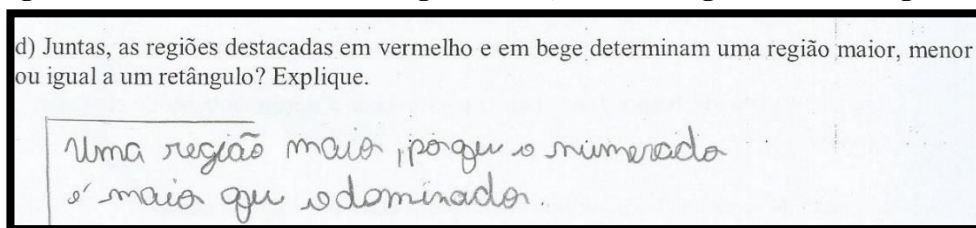 d) Juntas, as regiões destacadas em vermelho e em bege determinam uma região maior, menor
ou igual a um retângulo? Explique.
Uma região maior, porque o numerado
é maior que o dominador.